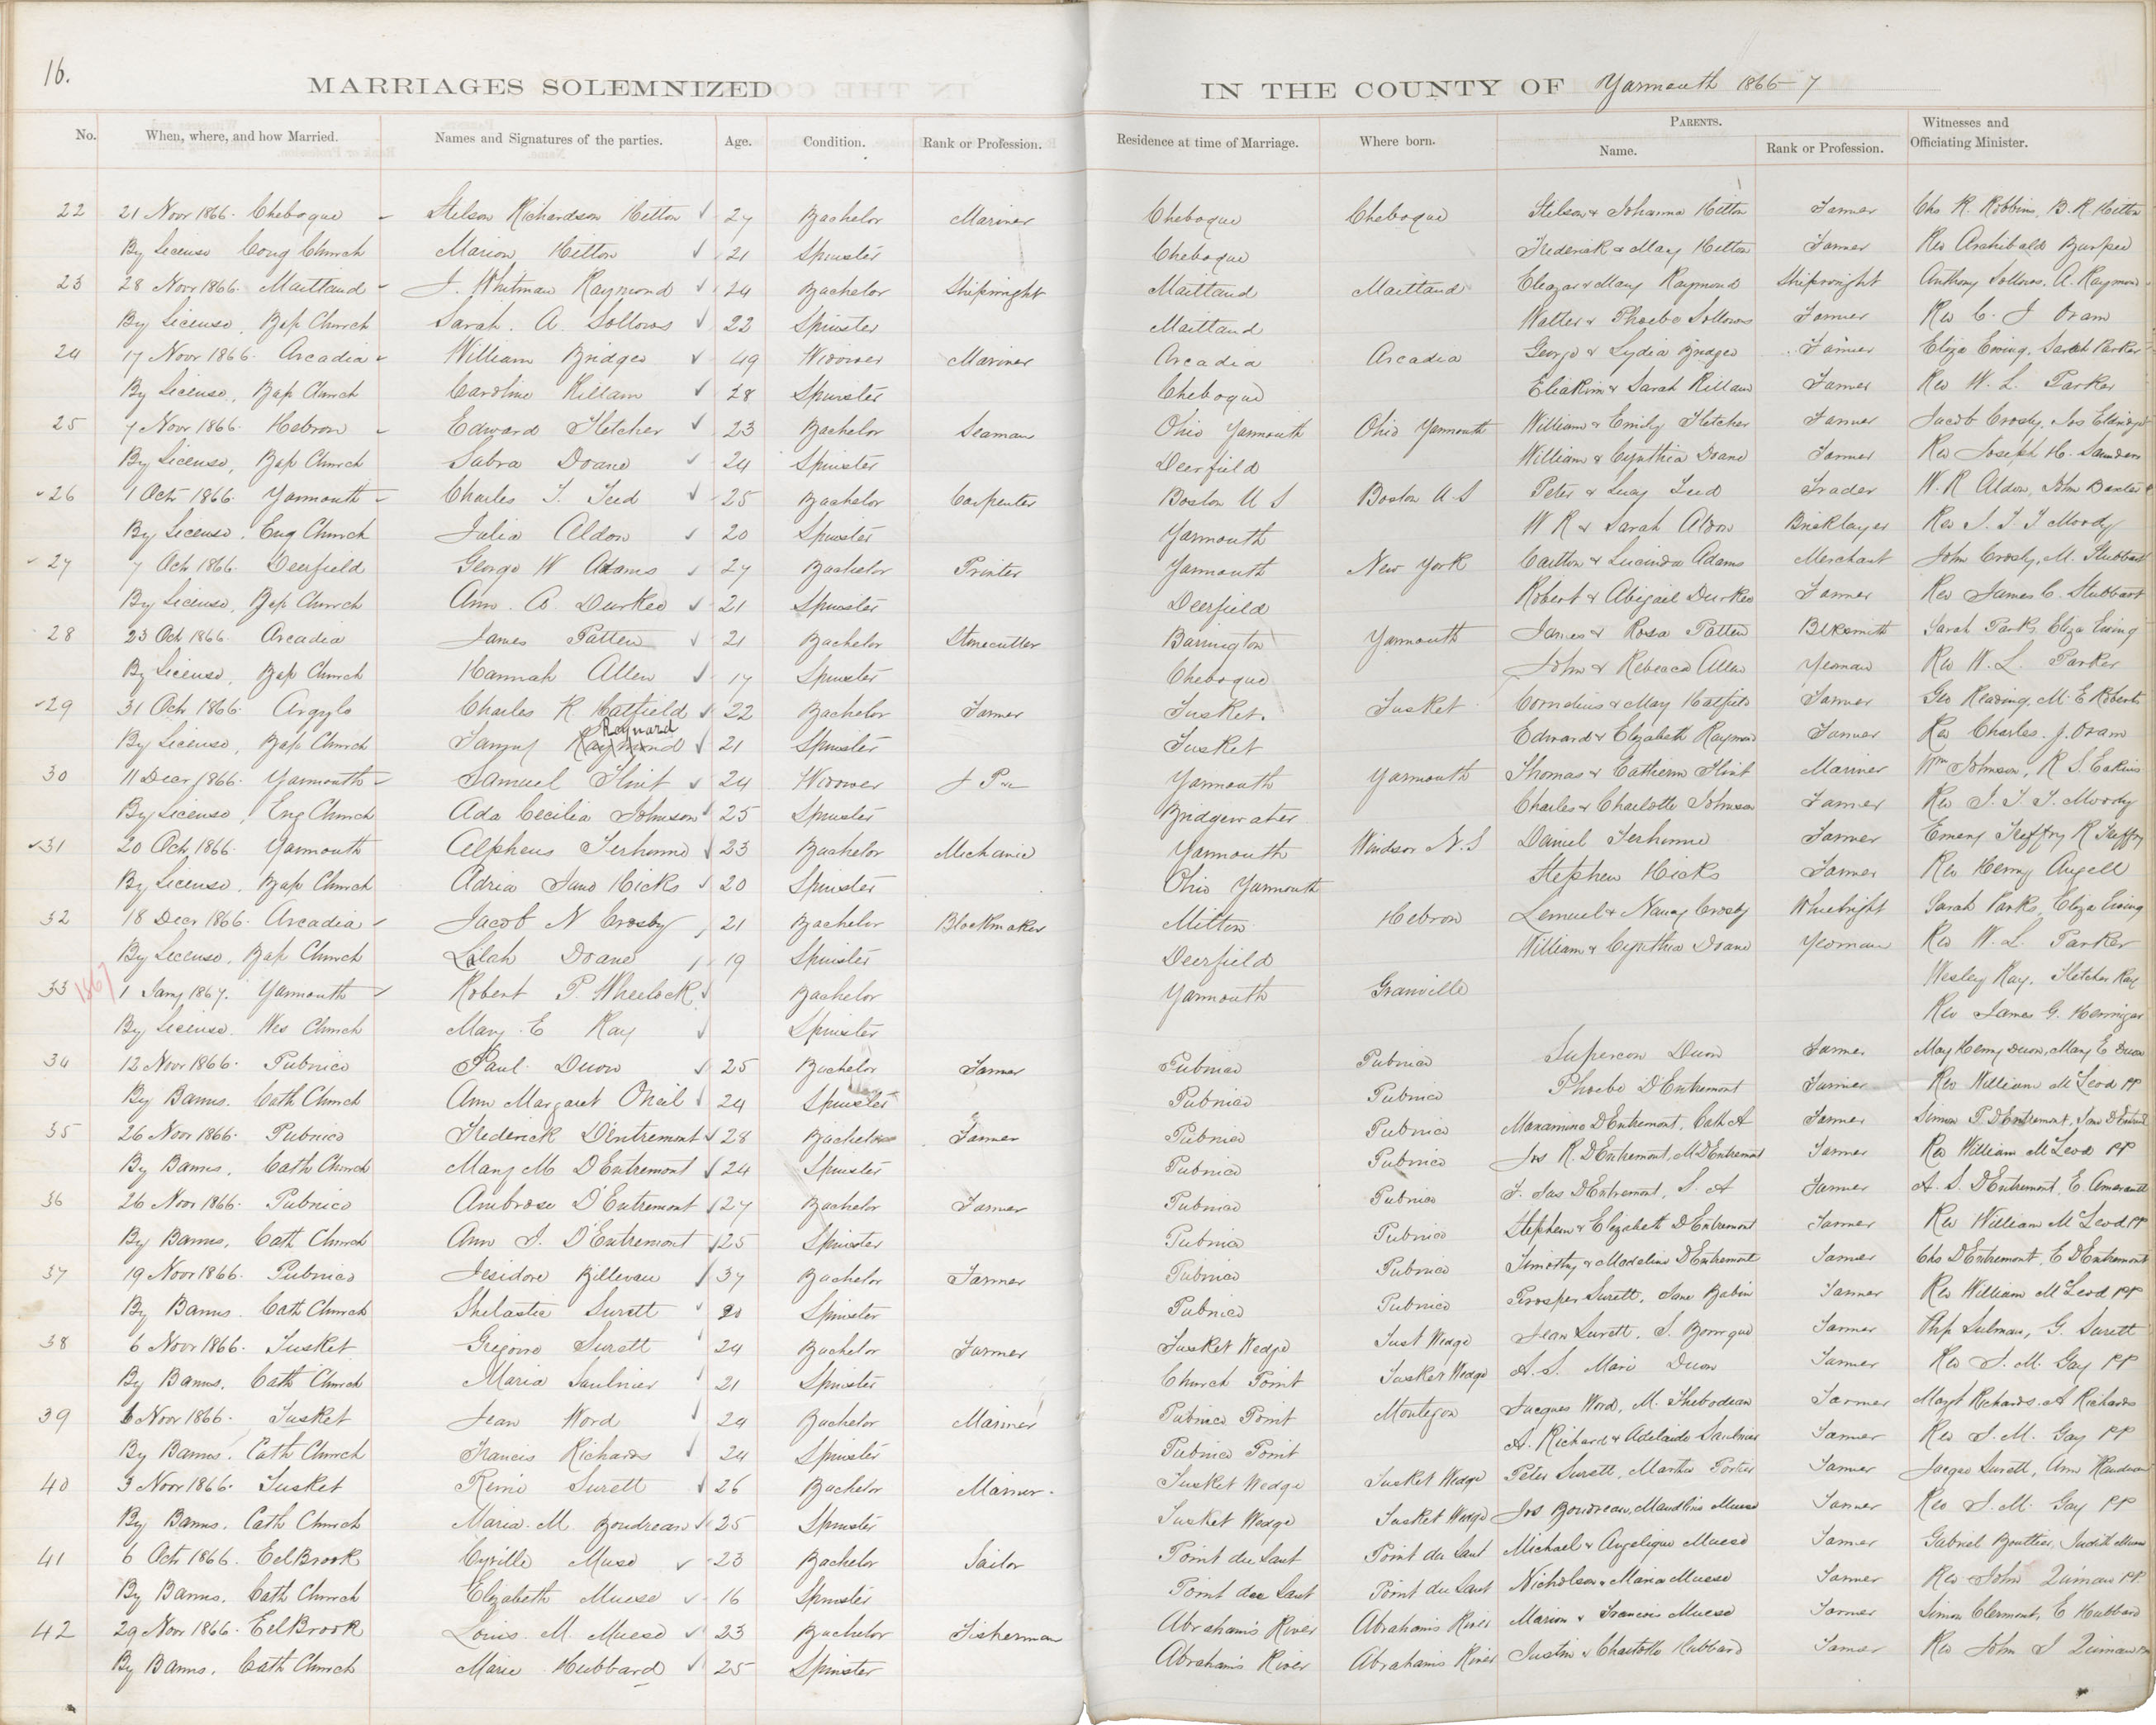 16.
MARRIAGES SOLEMNIZED IN THE COUNTY OF Yarmouth 1866-7
No. When, where, and how Married. Names and Signatures of the parties. Age. Condition. Rank or Profession. Residence at time of Marriage. Where born. PARENTS. Name. Rank or Profession. Witnesses and Officiating Minister.
22 21 Novr 1866. Cheboque Stelson Richardson Hilton 27 Bachelor Mariner Cheboque Cheboque Stelson & Johanna Hilton Farmer Chs R. Robbins, B. R. Hilton
By License Cong Church Marion Hilton 21 Spinster Cheboque Frederick & Mary Hilton Farmer Rev Archibald Burpee
23 28 Novr 1866. Maitland J. Whitman Raymond 24 Bachelor Shipwright Maitland Maitland Eleazar & Mary Raymond Shipwright Anthony Sollows, A. Raymond
By License, Bap Church Sarah. A. Sollows 22 Spinster Maitland Walter & Phoebe Sollows Farmer Rev C. J Oram
24 17 Novr 1866. Arcadia William Bridgeo 49 Widower Mariner Arcadia Arcadia George & Lydia Bridgeo Farmer Eliza Ewing, Sarah Parker
By License, Bap Church Caroline Killam 28 Spinster Cheboque Eliakim & Sarah Killam Farmer Rev W. L. Parker
25 7 Novr 1866. Hebron Edward Fletcher 23 Bachelor Seaman Ohio Yarmouth Ohio Yarmouth William & Emily Fletcher Farmer Jacob Crosby, Jos Eldridge
By License, Bap Church Sabra Doane 24 Spinster Deerfield William & Cynthia Doane Farmer Rev Joseph H. Saunders
26 1 Octr 1866. Yarmouth Charles T. Teed 25 Bachelor Carpenter Boston U S Boston U. S Peter & Lucy Teed Trader W. R Aldon, John Baxter
By License, Eng Church Julia Aldon 20 Spinster Yarmouth W R & Sarah Aldon Bricklayer Rev J. T. T Moody
27 7 Octr 1866. Deerfield George W Adams 27 Bachelor Printer Yarmouth New York Carlton & Lucinda Adams Merchant John Crosby, M. Stubbart
By License, Bap Church Ann. A. Durkee 21 Spinster Deerfield Robert & Abigail Durkee Farmer Rev James C. Stubbart
28 23 Oct 1866. Arcadia James Patten 21 Bachelor Stonecutter Barrington Yarmouth James & Rosa Patten Blksmith Sarah Parks, Eliza Ewing
By License, Bap Church Hannah Allen 17 Spinster Cheboque John & Rebecca Allen Yeoman Rev W. L. Parker
29 31 Octr 1866. Argyle Charles R Hatfield 22 Bachelor Farmer Tusket. Tusket Cornelius & Mary Hatfield Farmer Geo Reading, M. E Roberts
Raynard
By License, Bap Church Fanny Raymond 21 Spinster Tusket Edward & Elizabeth Raymond Farmer Rev Charles. J. Oram
30 11 Decr 1866. Yarmouth Samuel Flint 24 Widower Yarmouth Yarmouth Thomas & Catherin Flint Mariner Wm Johnson, R S. Eakins
By License, Eng Church Ada Cecilia Johnson 25 Spinster Bridgewater Charles & Charlotte Johnson Farmer Rev J. T. T. Moody
31 20 Octr 1866. Yarmouth Alpheus Terhunne 23 Bachelor Mechanic Yarmouth Windsor N. S Daniel Terhunne Farmer Emery Treffry R Treffry
By License, Bap Church Adria Jane Hicks 20 Spinster Ohio Yarmouth Stephen Hicks Farmer Rev Henry Angell
32 18 Decr 1866. Arcadia Jacob N Crosby 21 Bachelor Blockmaker Milton Hebron Lemuel & Nancy Crosby Whielright Sarah Parks, Eliza Ewing
By License, Bap Church Lilah Doane 19 Spinster Deerfield William & Cynthia Doane Yeoman Rev W. L. Parker
1867
33 1 Jany 1867. Yarmouth Robert P. Wheelock Bachelor Yarmouth Granville Wesley Kay, Fletcher Kay
By License. Wes Church Mary. E Kay Spinster Rev James G. Hennigar
34 12 Novr 1866. Pubnico Paul Duon 25 Bachelor Farmer Pubnico Pubnico Duon Farmer May Henry Duon, Mary E Duon
By Banns. Cath Church Ann Margaret Oneil 24 Spinster Pubnico Pubnico Phoebe DEntremont Farmer Rev William McLeod PP
35 26 Novr 1866. Pubnico Frederick D'Entremont 28 Bachelor Farmer Pubnico Pubnico Maxamine DEntremont, Cath A Farmer Simon P. DEntremont, Jane DEntremont
By Banns, Cath Church Mary M DEntremont 24 Spinster Pubnico Pubnico Jos R. DEntremont, M DEntremont Farmer Rev William McLeod PP
36 26 Novr 1866. Pubnico Ambrose D'Entremont 27 Bachelor Farmer Pubnico Pubnico J. Jas DEntremont, S. A Farmer A. S. DEntremont, E Amerault
By Banns, Cath Church Ann J. D'Entremont 25 Spinster Pubnico Pubnico Stephen & Elizabeth DEntremont Farmer Rev William McLeod PP
37 19 Novr 1866. Pubnico Jesidore Billeveau 37 Bachelor Farmer Pubnico Pubnico Timothy & Madeline DEntremont Farmer Chs DEntremont, E DEntremont
By Banns. Cath Church Shelastie Surett 20 Spinster Pubnico Pubnico Prosper Surett, Jane Babin Farmer Rev William McLeod PP
38 6 Novr 1866. Tusket Gregoire Surett 24 Bachelor Farmer Tusket Wedge Tusk Wedge Jean Surett, S. Bourque Farmer G. Surett
By Banns, Cath Church Maria Saulnier 21 Spinster Church Point Tusket Wedge A. S. Mari Duon Farmer Rev J. M. Gay PP
39 6 Novr 1866. Tusket Jean Word 24 Bachelor Mariner Pubnico Point Montegon Jacques Word, M. Thebodeau Farmer Magt Richards. A Richards
By Banns. Cath Church Francis Richards 24 Spinster Pubnico Point A. Richard & Adelaide Saulnier Farmer Rev J. M. Gay PP
40 3 Novr 1866. Tusket Remie Surett 26 Bachelor Mariner. Tusket Wedge Tusket Wedge Peter Surett, Martha Portier Farmer Jacque Surett, Ann
By Banns. Cath Church Maria. M. Boudreau 25 Spinster Tusket Wedge Tusket Wedge Jos Boudreau, Maudline Muese Farmer Rev J. M. Gay PP
41 6 Octr 1866. EelBrook Cyrille Muse 23 Bachelor Sailor Point du Saut Point du Saut Michael & Angelique Muese Farmer Gabriel Bouttier, Judith Muese
By Banns, Cath Church Elizabeth Muese 16 Spinster Point du Saut Point du Saut Nicholson & Maria Muese Farmer Rev John Quinan PP.
42 29 Novr 1866. EelBrook Louis. M. Muese 23 Bachelor Fisherman Abraham's River Abrahams River Marion & Francois Muese Farmer Simon Clermont, E Hubbard
By Banns, Cath Church Marie Hubbard 25 Spinster Abraham's River Abrahams River Justin & Charlotte Hubbard Farmer Rev John J Quinan